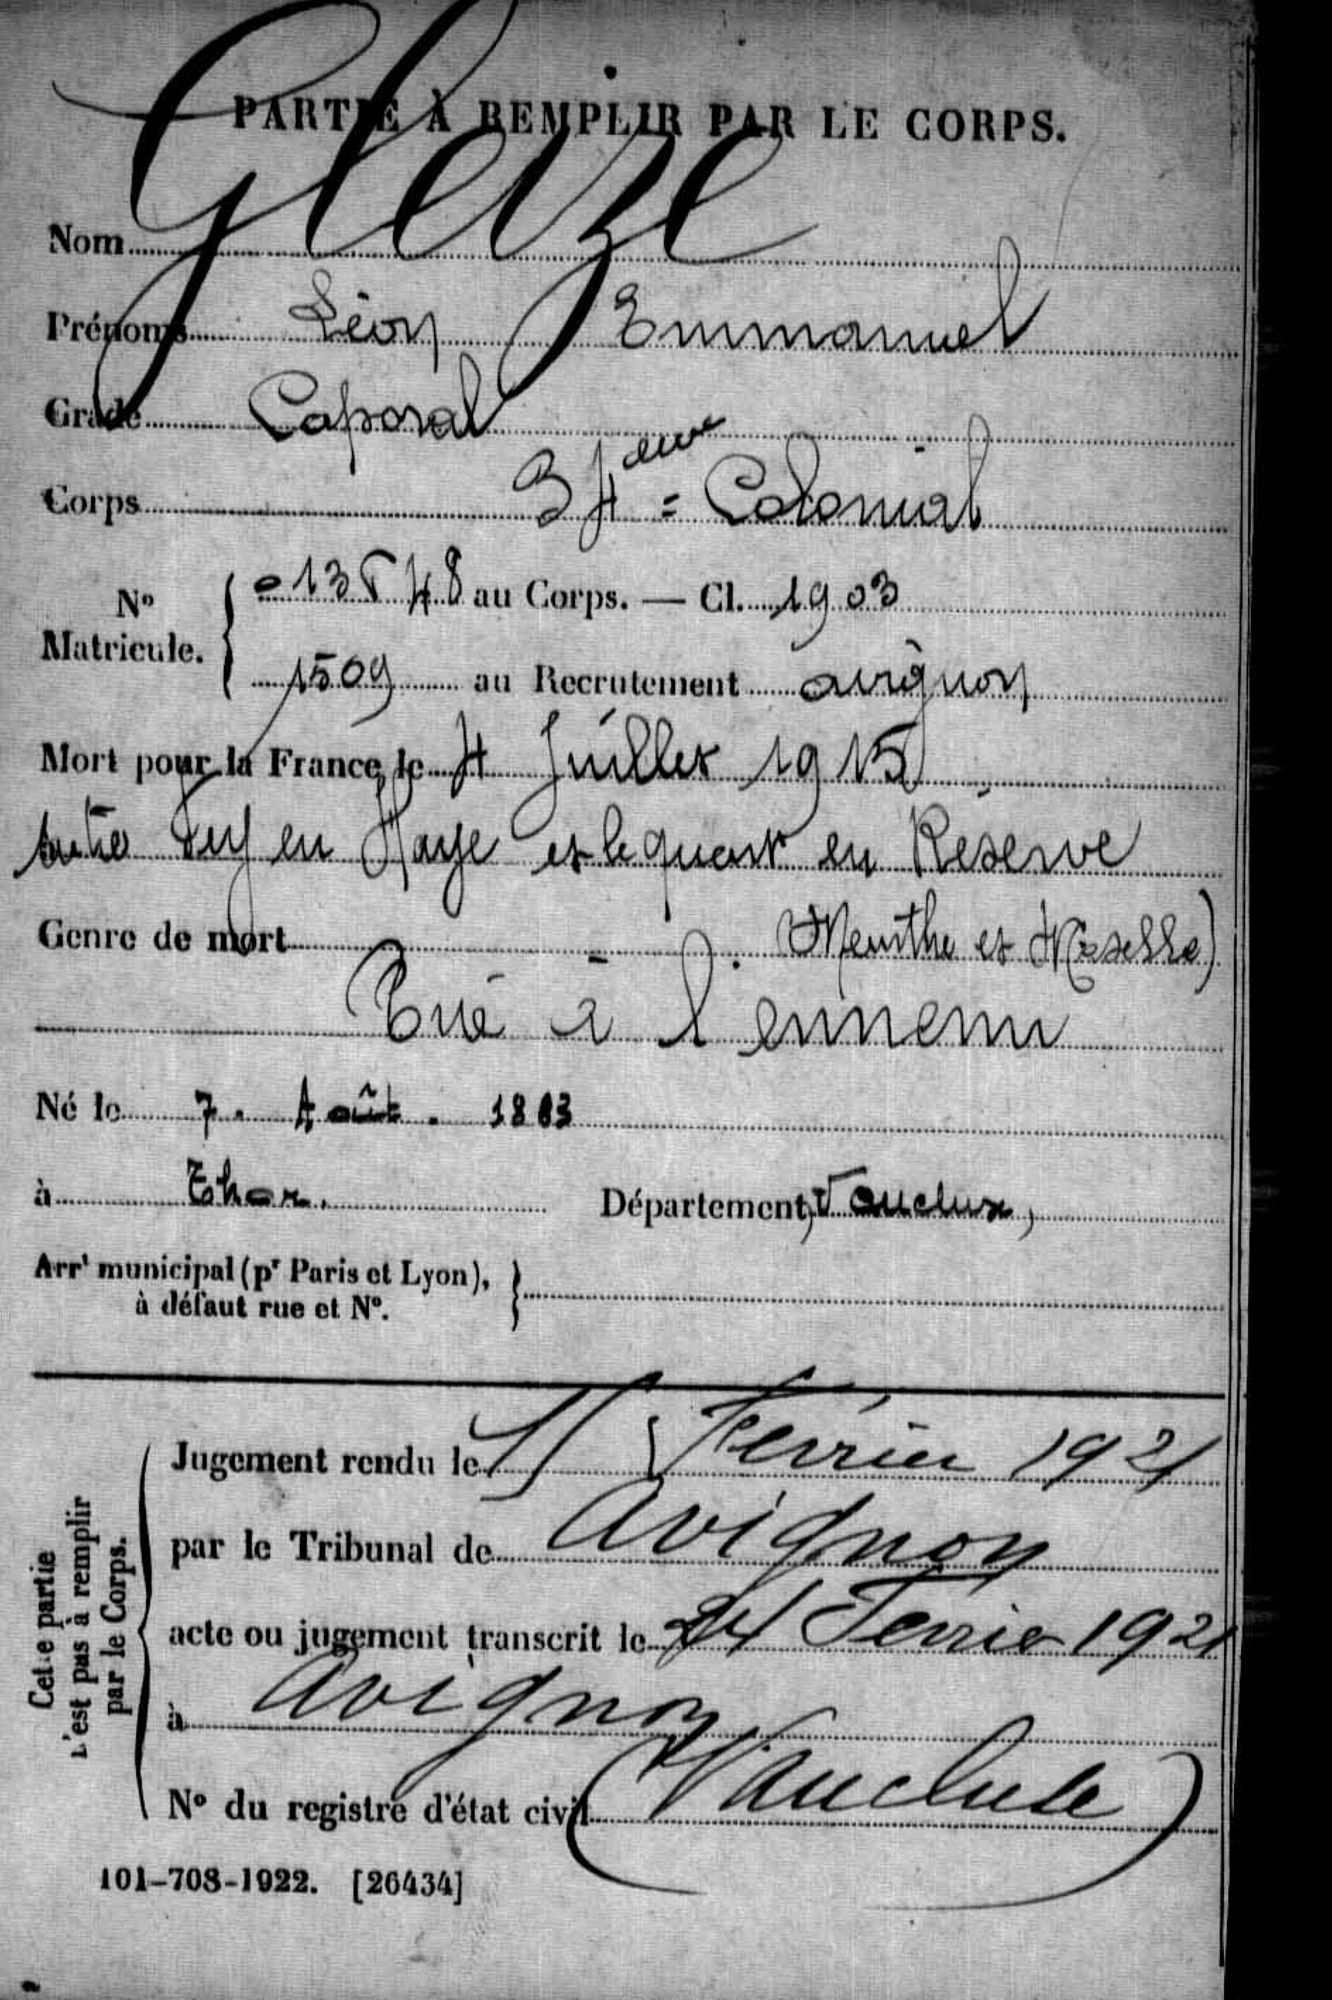 PARTIE À REMPLIR PAR LE CORPS.
Nom Gleize
Prénoms Léon Emmanuel
Grade Caporal
Corps 34eme = Colonial
No Matricule. 013548 au Corps. — Cl. 1903
1509 au Recrutement avignon
Mort pour la France le 4 Juillet 1915
entre Fey en Haye et le quart en Reserve
Genre de mort Meurthe et Moselle)
Tué à l'ennemi
Né le 7. Août. 1883
à Thor. Département Vaucluse,
Arrt municipal (pr Paris et Lyon),
à défaut rue et No.
Cette partie
n'est pas à remplir
par le Corps.
Jugement rendu le 11 Février 1921
par le Tribunal de Avignon
acte ou jugement transcrit le 24 Fevrier 1921
à Avignon
No du registre d'état civil (Vaucluse)
101-708-1922. [26434]